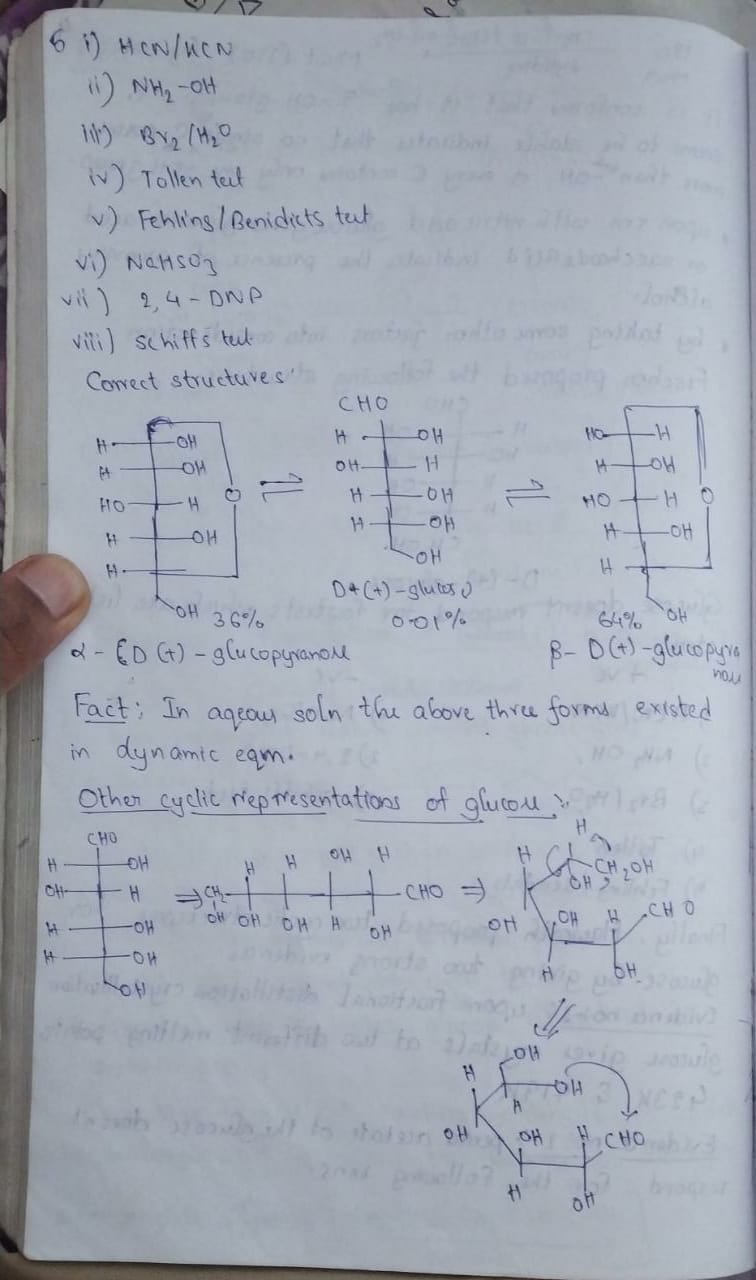 6 i) HCN/KCN
ii) NH2-OH
iii) Br2/H2O
iv) Tollen test
v) Fehlings/Benidicts test
vi) NaHSO3
vii) 2,4-DNP
viii) schiffs test
Correct structures:
CHO
H OH H OH HO H
H OH OH H H OH
HO H O H OH HO H O
H OH H OH H OH
H OH H
OH 36% D+(+)-glucose 64% OH
0.01%
α-D(+)-glucopyranose β-D(+)-glucopyra
nose
Fact: In aqeous soln the above three forms existed
in dynamic eqm.
Other cyclic representations of glucose:
CHO H
H OH H H OH H H CH2OH
OH H CH2 CHO OH
H OH OH OH OH H OH OH OH H CHO
H OH
OH H OH
OH
H OH
H
OH OH H CHO
H OH